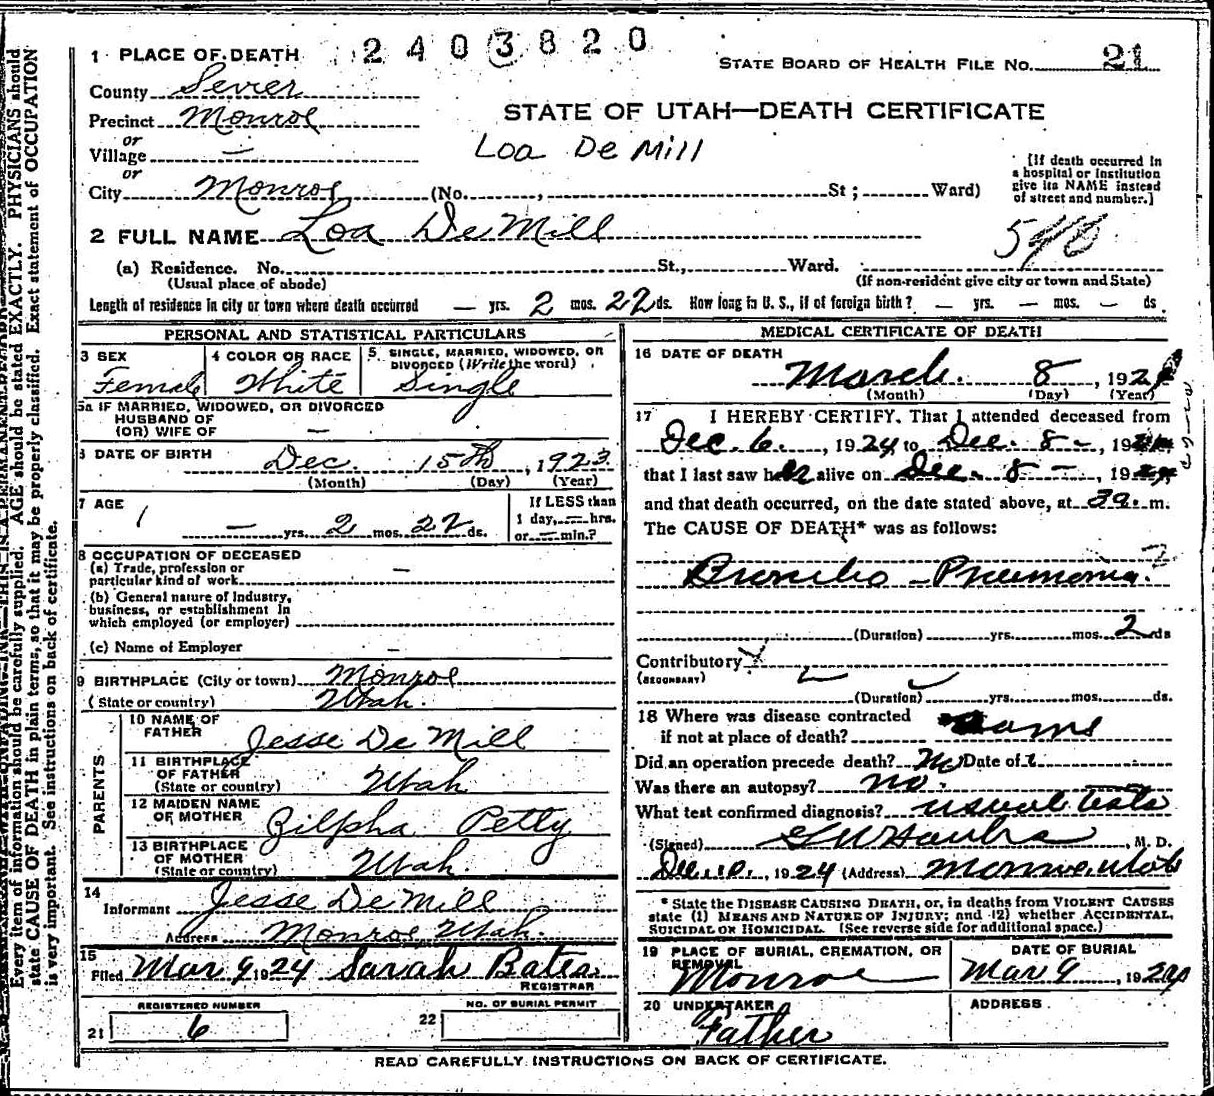 1 PLACE OF DEATH 2403820
STATE BOARD OF HEALTH FILE NO. 21
County Sevier
STATE OF UTAH—DEATH CERTIFICATE
Precinct Monroe
or
Village —
Loa De Mill
or
City Monroe (No. , St; Ward)
[If death occurred in
a hospital or institution
give its NAME instead
of street and number.]
2 FULL NAME Loa De Mill
(a) Residence. No. St., Ward.
(Usual place of abode) (If non-resident give city or town and State)
Length of residence in city or town where death occurred — yrs. 2 mos. 22 ds. How long in U. S., if of foreign birth? — yrs. — mos. — ds
PERSONAL AND STATISTICAL PARTICULARS
3 SEX
Female
4 COLOR OR RACE
White
5 SINGLE, MARRIED, WIDOWED, OR
DIVORCED (Write the word)
Single
5a IF MARRIED, WIDOWED, OR DIVORCED
HUSBAND OF
(OR) WIFE OF —
6 DATE OF BIRTH
Dec. 15th, 1923
(Month) (Day) (Year)
7 AGE
— yrs. 2 mos. 22 ds.
If LESS than
1 day, — hrs.
or — min.?
8 OCCUPATION OF DECEASED
(a) Trade, profession or
particular kind of work —
(b) General nature of Industry,
business, or establishment in
which employed (or employer)
(c) Name of Employer —
9 BIRTHPLACE (City or town) Monroe
(State or country) Utah.
PARENTS
10 NAME OF
FATHER Jesse De Mill
11 BIRTHPLACE
OF FATHER
(State or country) Utah
12 MAIDEN NAME
OF MOTHER Zilpha Petty
13 BIRTHPLACE
OF MOTHER
(State or country) Utah.
14
Informant Jesse De Mill
Address Monroe, Utah.
15
Filed Mar 9, 1924 Sarah Bates
REGISTRAR
REGISTERED NUMBER
21 6
NO. OF BURIAL PERMIT
22
MEDICAL CERTIFICATE OF DEATH
16 DATE OF DEATH
March. 8, 192
(Month) (Day) (Year)
17 I HEREBY CERTIFY, That I attended deceased from
Dec. 6, 1924 to Dec. 8 -, 19
that I last saw her alive on Dec. 8 -, 19
and that death occurred, on the date stated above, at 3 a. m.
The CAUSE OF DEATH* was as follows:
Broncho - Pneumonia.
(Duration) yrs. mos. 2 ds
Contributory
(SECONDARY)
(Duration) yrs. mos. ds.
18 Where was disease contracted
if not at place of death?
Did an operation precede death? No Date of
Was there an autopsy? no.
What test confirmed diagnosis? usual tests
(Signed) , M. D.
Dec. 10, 1924 (Address) Monroe, Utah
* State the DISEASE CAUSING DEATH, or, in deaths from VIOLENT CAUSES
state (1) MEANS AND NATURE OF INJURY; and (2) whether ACCIDENTAL,
SUICIDAL OR HOMICIDAL. (See reverse side for additional space.)
19 PLACE OF BURIAL, CREMATION, OR
REMOVAL
Monroe
DATE OF BURIAL
Mar 9, 192
20 UNDERTAKER
Father
ADDRESS
READ CAREFULLY INSTRUCTIONS ON BACK OF CERTIFICATE.
Every item of information should be carefully supplied. AGE should be stated EXACTLY. PHYSICIANS should
state CAUSE OF DEATH in plain terms, so that it may be properly classified. Exact statement of OCCUPATION
is very important. See instructions on back of certificate.